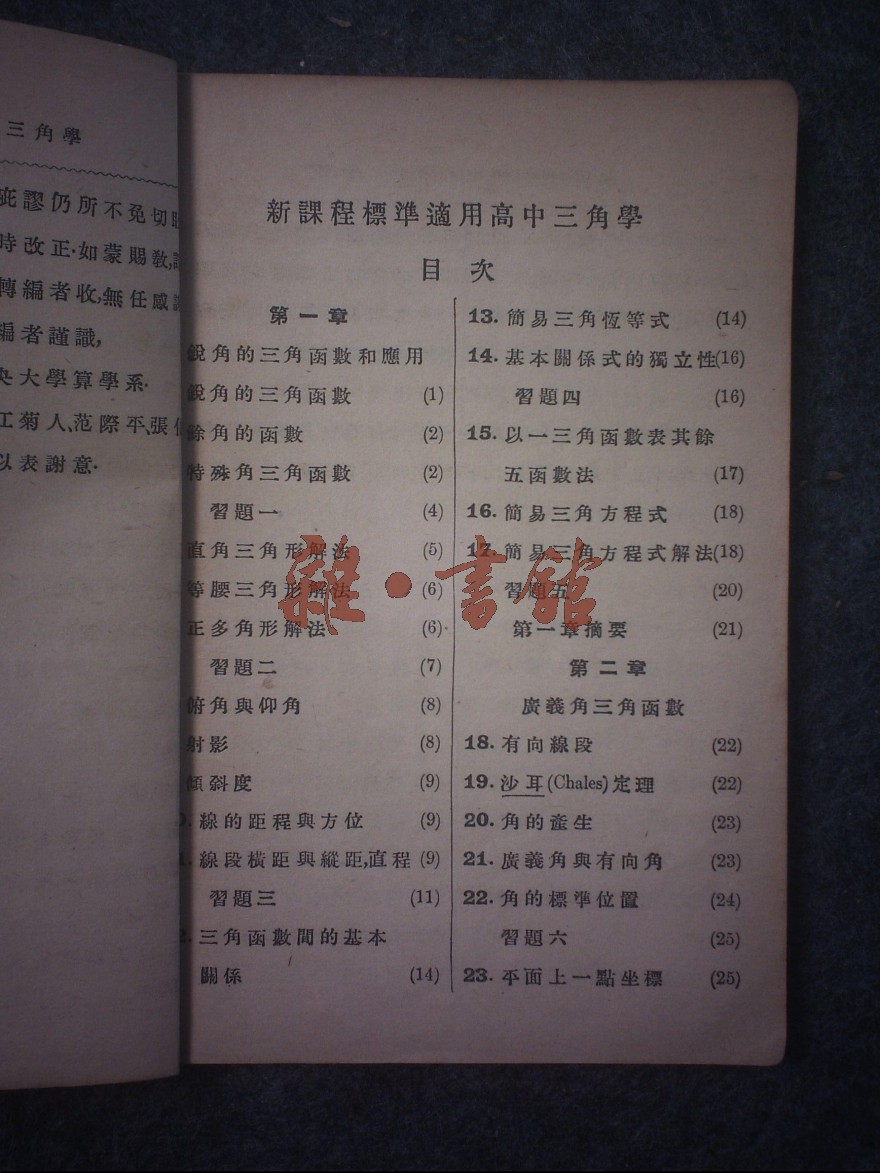 三角學
疵謬仍所不免切
時改正·如蒙賜敎,
轉編者收,無任感
編者謹識,
央大學算學系·
江菊人、范際平、張
以表謝意·
新課程標準適用高中三角學
目次
第一章
銳角的三角函數和應用
銳角的三角函數 (1)
餘角的函數 (2)
特殊角三角函數 (2)
習題一 (4)
直角三角形解法 (5)
等腰三角形解法 (6)
正多角形解法 (6)
習題二 (7)
俯角與仰角 (8)
射影 (8)
傾斜度 (9)
線的距程與方位 (9)
線段橫距與縱距,直程 (9)
習題三 (11)
三角函數間的基本
關係 (14)
13. 簡易三角恆等式 (14)
14. 基本關係式的獨立性(16)
習題四 (16)
15. 以一三角函數表其餘
五函數法 (17)
16. 簡易三角方程式 (18)
17. 簡易三角方程式解法(18)
習題五 (20)
第一章摘要 (21)
第二章
廣義角三角函數
18. 有向線段 (22)
19. 沙耳(Chales)定理 (22)
20. 角的產生 (23)
21. 廣義角與有向角 (23)
22. 角的標準位置 (24)
習題六 (25)
23. 平面上一點坐標 (25)
雜·書館